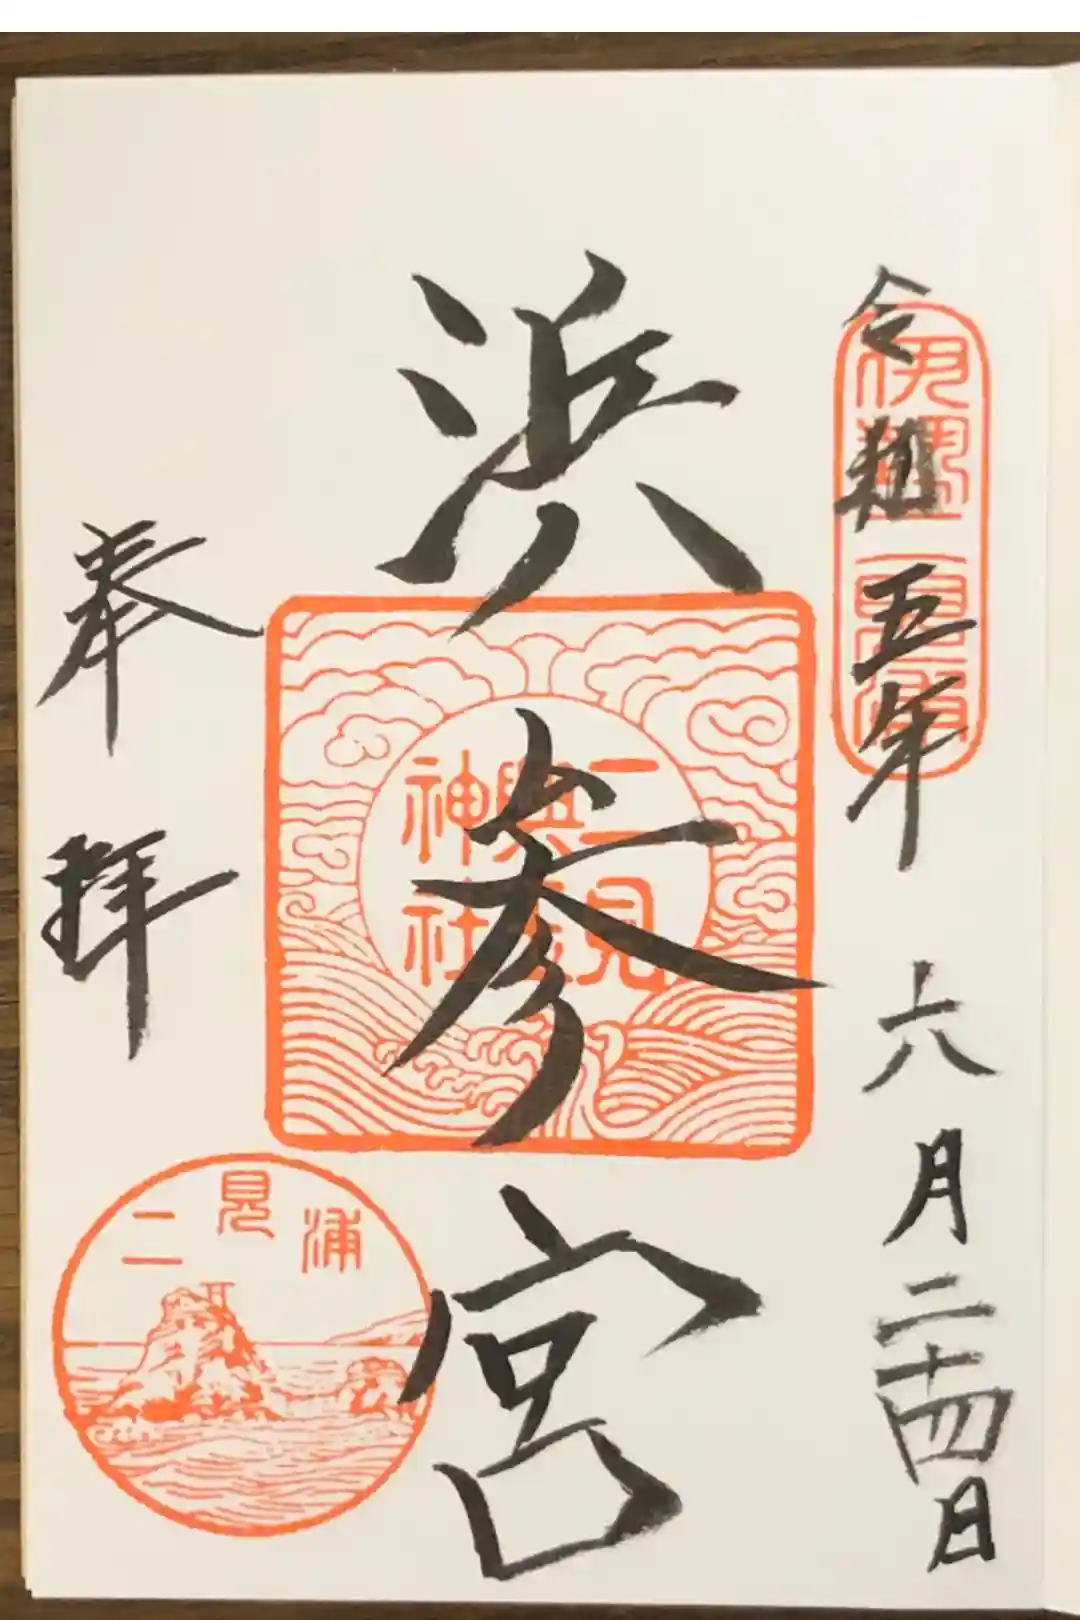 令和五年 六月二十四日
伊勢二見浦
浜参宮
二見
興玉
神社
奉拝
二見浦